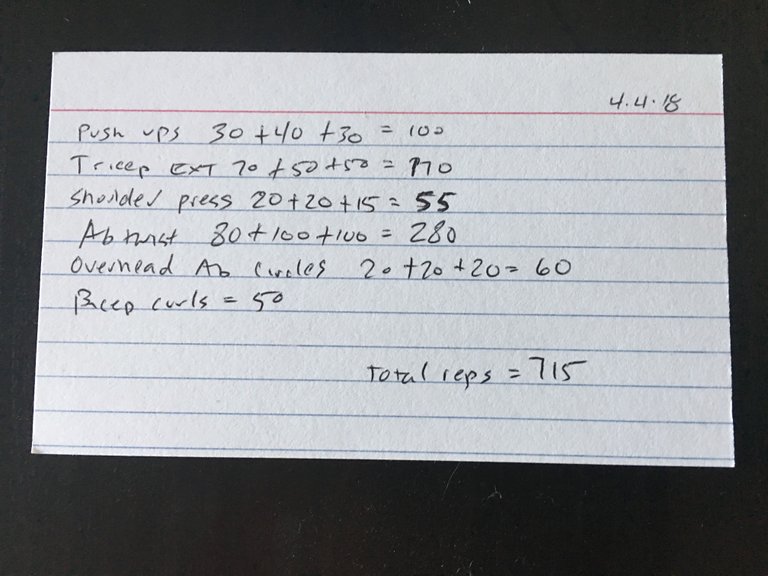 4.4.18
Push ups 30 + 40 + 30 = 100
Tricep EXT 70 + 50 + 50 = 170
Shoulder press 20 + 20 + 15 = 55
Ab twist 80 + 100 + 100 = 280
Overhead Ab circles 20 + 20 + 20 = 60
Bicep curls = 50
total reps = 715